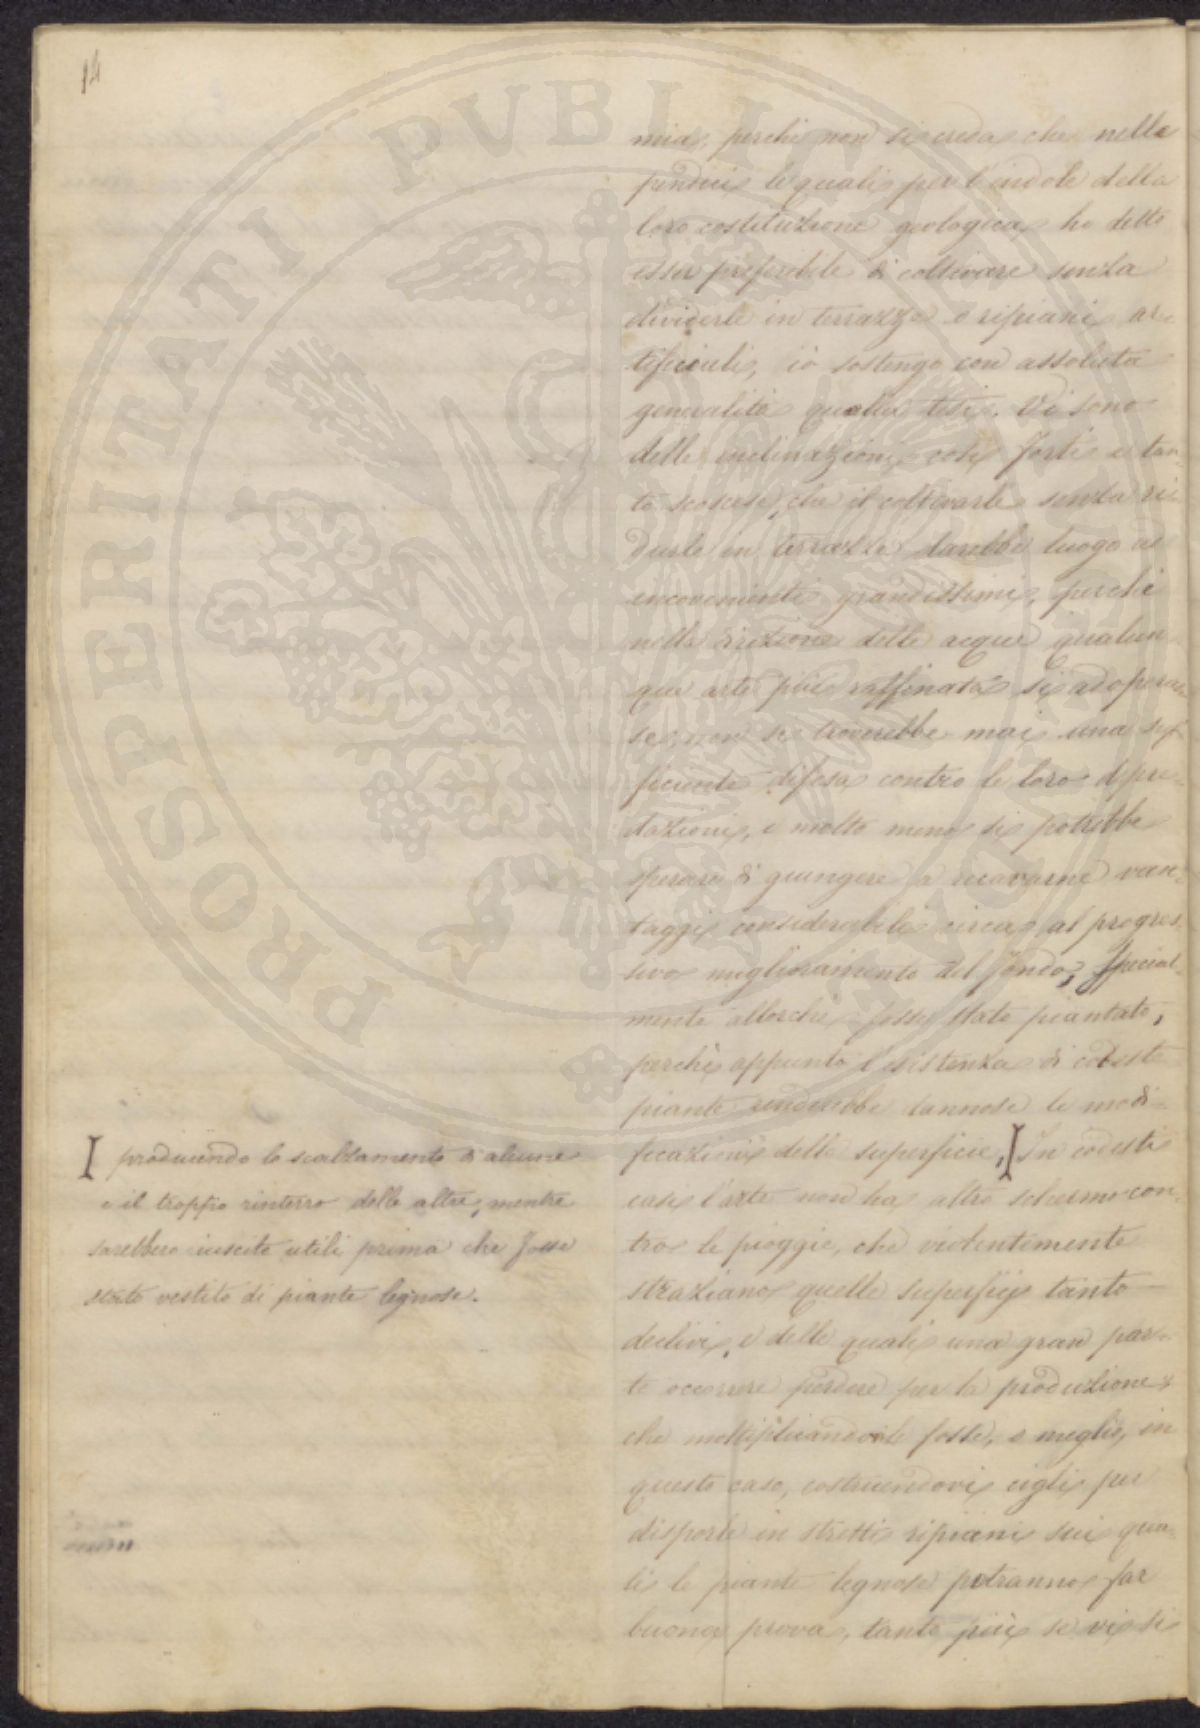 14
mia, perchè non si creda che nelle
pendici le quali per l'indole della
loro costituzione geologica ho detto
esser preferibile di coltivare senza
dividerle in terrazze o ripiani ar-
tificiali, io sostengo con assoluta
generalità questa tesi. Vi sono
delle inclinazioni così forti e tan-
to scoscese, che il coltivarle senza ri-
durle in terrazze darebbe luogo ad
inconvenienti grandissimi, perchè
nella direzione delle acque qualun-
que arte più raffinata si adoperas-
se, non si troverebbe mai una suf-
ficiente difesa contro le loro depre-
dazioni, e molto meno si potrebbe
sperare di giungere a ricavarne van-
taggi considerabili circa al progres-
sivo miglioramento del fondo, special-
mente allorchè fosse stato piantato,
perchè appunto l'esistenza di codeste
piante renderebbe dannose le modi-
ficazioni della superficie, I In codesti
casi l'arte non ha altro schermo con-
tro le pioggie, che violentemente
straziano quelle superfici tanto
declivi, e delle quali una gran par-
te occorrere perdere per la produzione
che moltiplicandovi le fosse, o meglio, in
questo caso, costruendovi cigli per
disporle in stretti ripiani sui qua-
li le piante legnose potranno far
buona prova, tanto più se vi si
I producendo lo scalzamento di alcune
e il troppo rinterro delle altre, mentre
sarebbero riuscite utili prima che fosse
stato vestito di piante legnose.
PROSPERITATI PUBLICAE